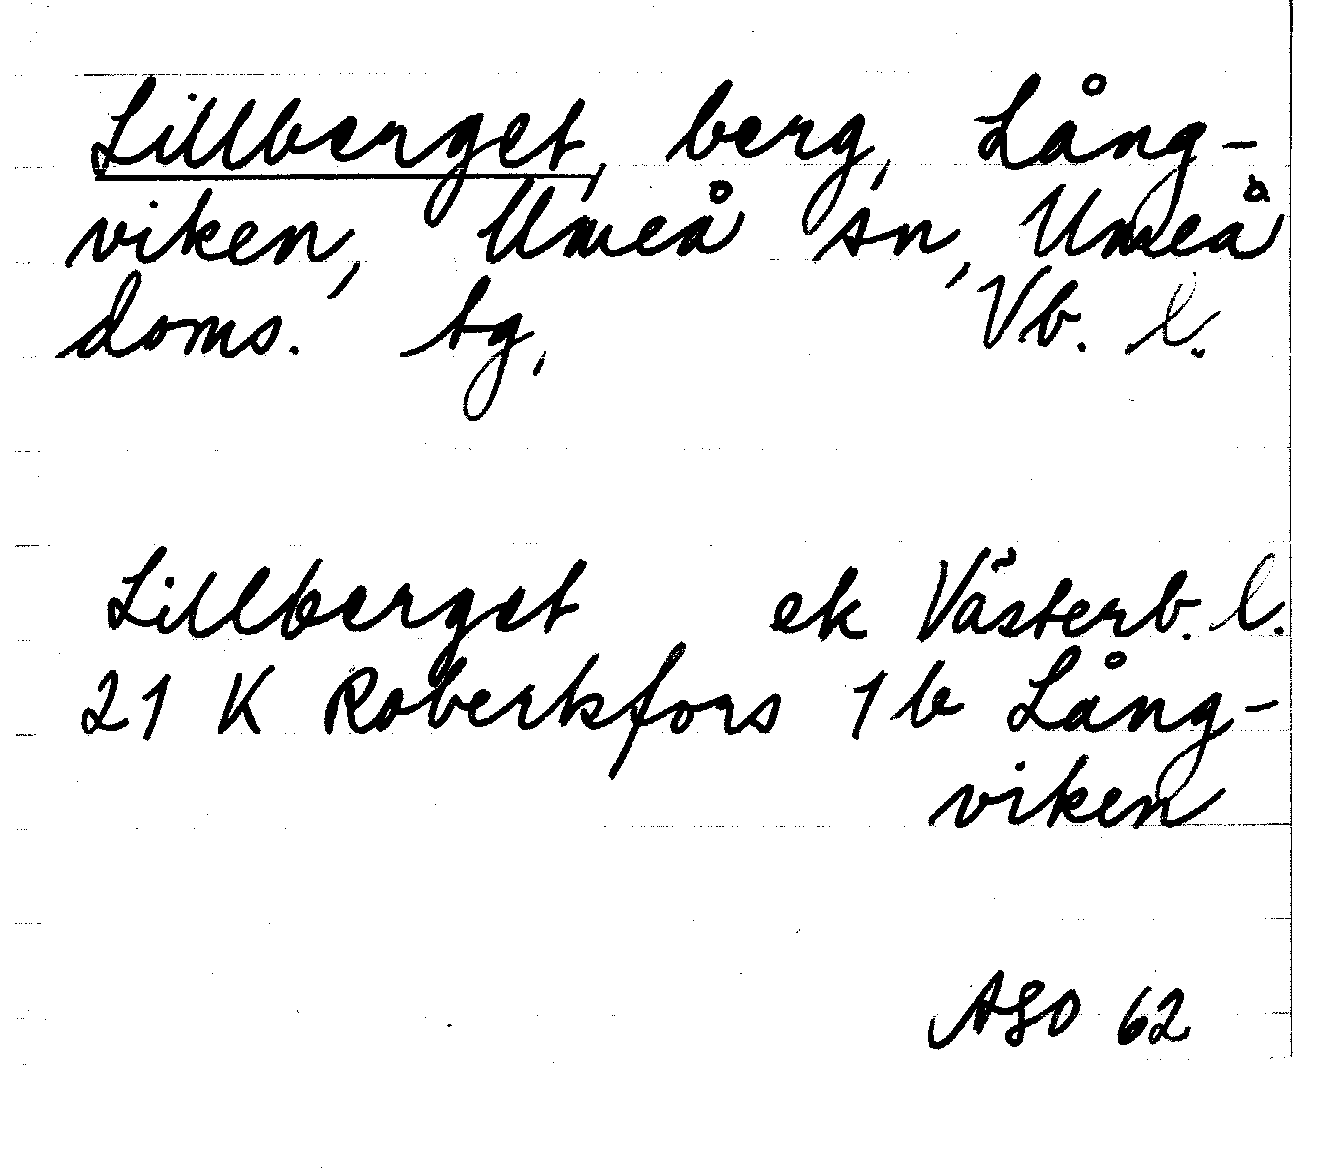 Lillberget, berg, Lång-
viken, Umeå sn, Umeå
doms. tg, Vb. l.
Lillberget ek Västerb. l.
21 K Robertsfors 1 b Lång-
viken
ASO 62